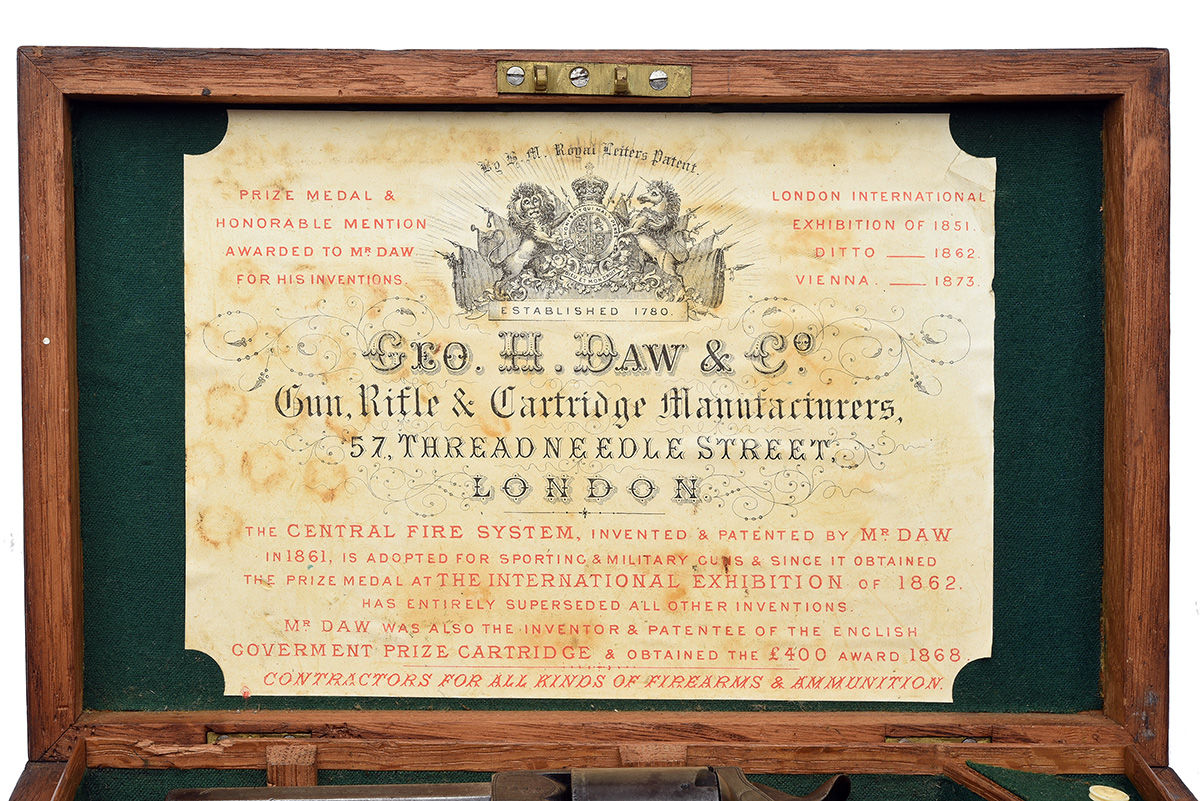 By H. M. Royal Letters Patent.
PRIZE MEDAL &
HONORABLE MENTION
AWARDED TO MR DAW
FOR HIS INVENTIONS.
LONDON INTERNATIONAL
EXHIBITION OF 1851.
DITTO — 1862.
VIENNA. — 1873.
ESTABLISHED 1780.
GEO. H. DAW & Co.
Gun, Rifle & Cartridge Manufacturers,
57, THREADNEEDLE STREET,
LONDON.
THE CENTRAL FIRE SYSTEM, INVENTED & PATENTED BY MR DAW
IN 1861, IS ADOPTED FOR SPORTING & MILITARY GUNS & SINCE IT OBTAINED
THE PRIZE MEDAL AT THE INTERNATIONAL EXHIBITION OF 1862.
HAS ENTIRELY SUPERSEDED ALL OTHER INVENTIONS.
MR DAW WAS ALSO THE INVENTOR & PATENTEE OF THE ENGLISH
GOVERMENT PRIZE CARTRIDGE & OBTAINED THE £400 AWARD 1868.
CONTRACTORS FOR ALL KINDS OF FIREARMS & AMMUNITION.